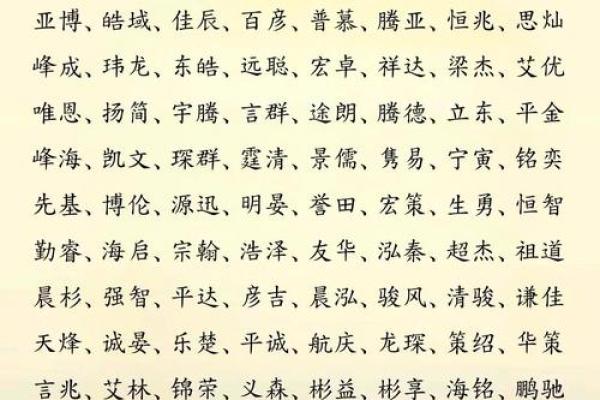 亚博、皓域、佳辰、百彦、普慕、腾亚、恒兆、思灿
峰成、玮龙、东皓、远聪、宏卓、祥达、梁杰、艾优
唯恩、扬简、宇腾、言群、途朗、腾德、立东、平金
峰海、凯文、琛群、霆清、景儒、隽易、宁寅、铭奕
先基、博伦、源迅、明晏、誉田、宏策、生勇、恒智
勤睿、海启、宗翰、浩泽、友华、泓秦、超杰、祖道
晨杉、强智、平达、彦吉、晨泓、骏风、清骏、谦佳
天烽、诚晏、乐楚、平诚、航庆、龙琛、策绍、华策
言兆、艾林、锦荣、义森、彬益、彬享、海铭、鹏驰